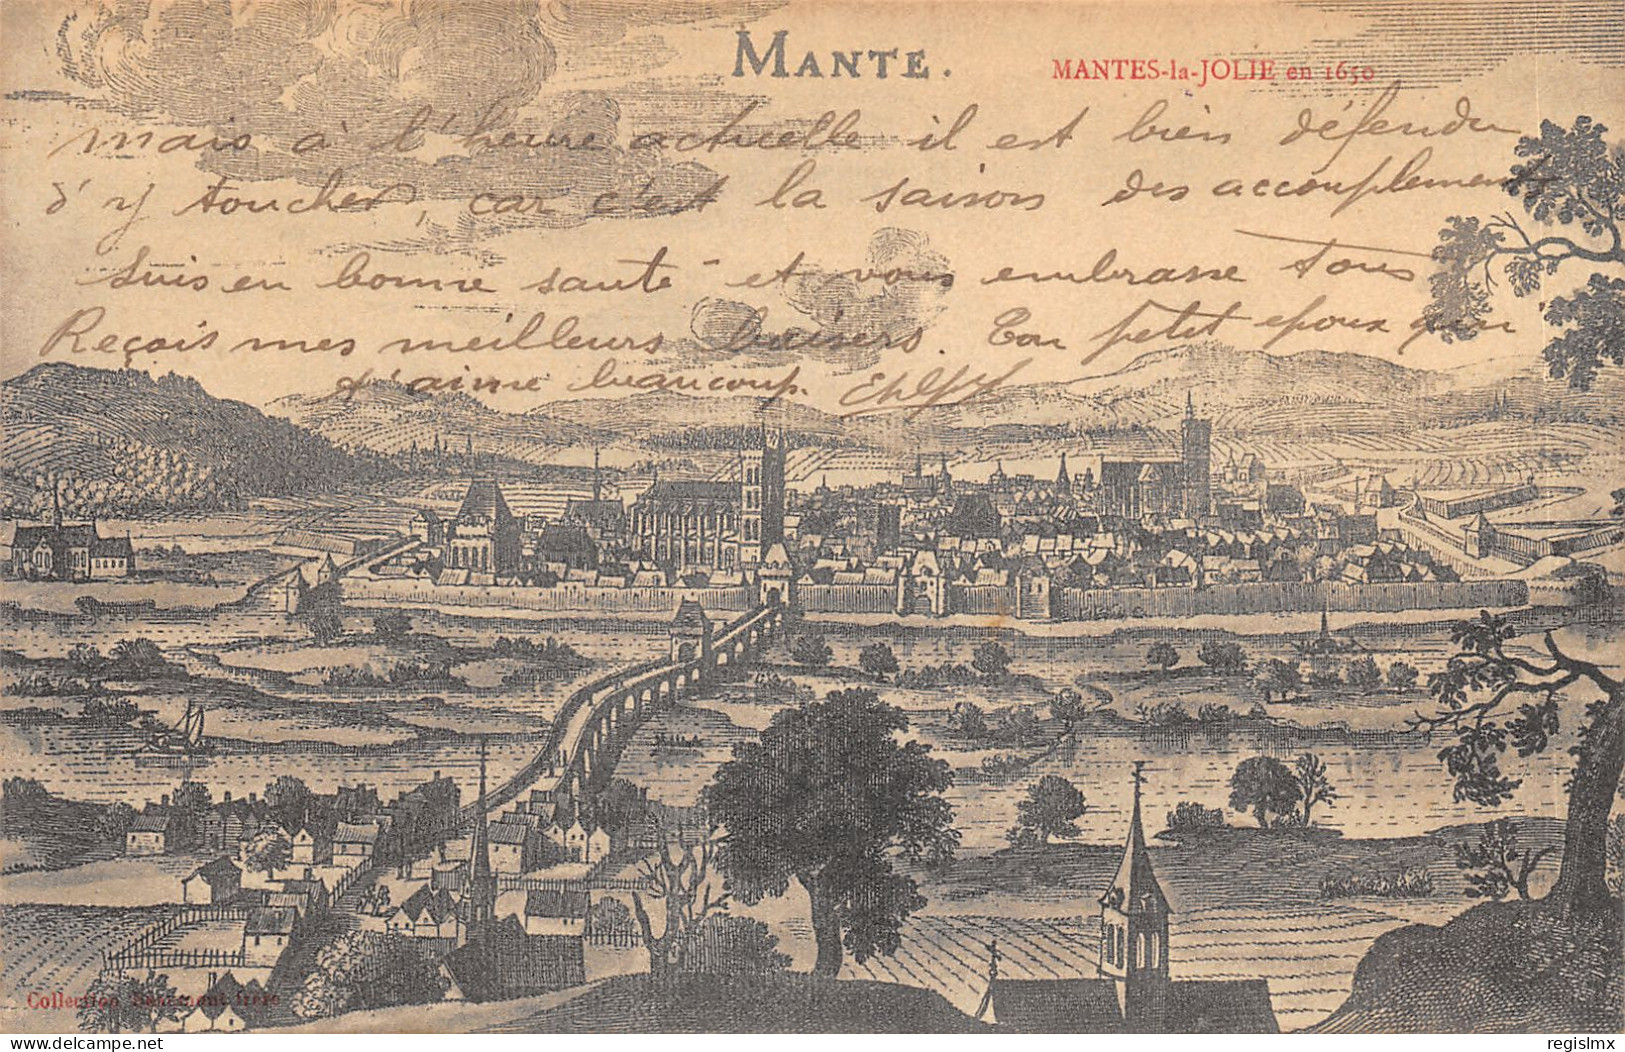 MANTE.
MANTES-la-JOLIE en 1650
mais à l'heure actuelle il est bien défendu
d'y toucher, car c'est la saison des accouplements
Suis en bonne santé et vous embrasse tous
Reçois mes meilleurs baisers. Ton petit epoux qui
t'aime beaucoup.
Collection Beaumont frère
delcampe.net
regislmx